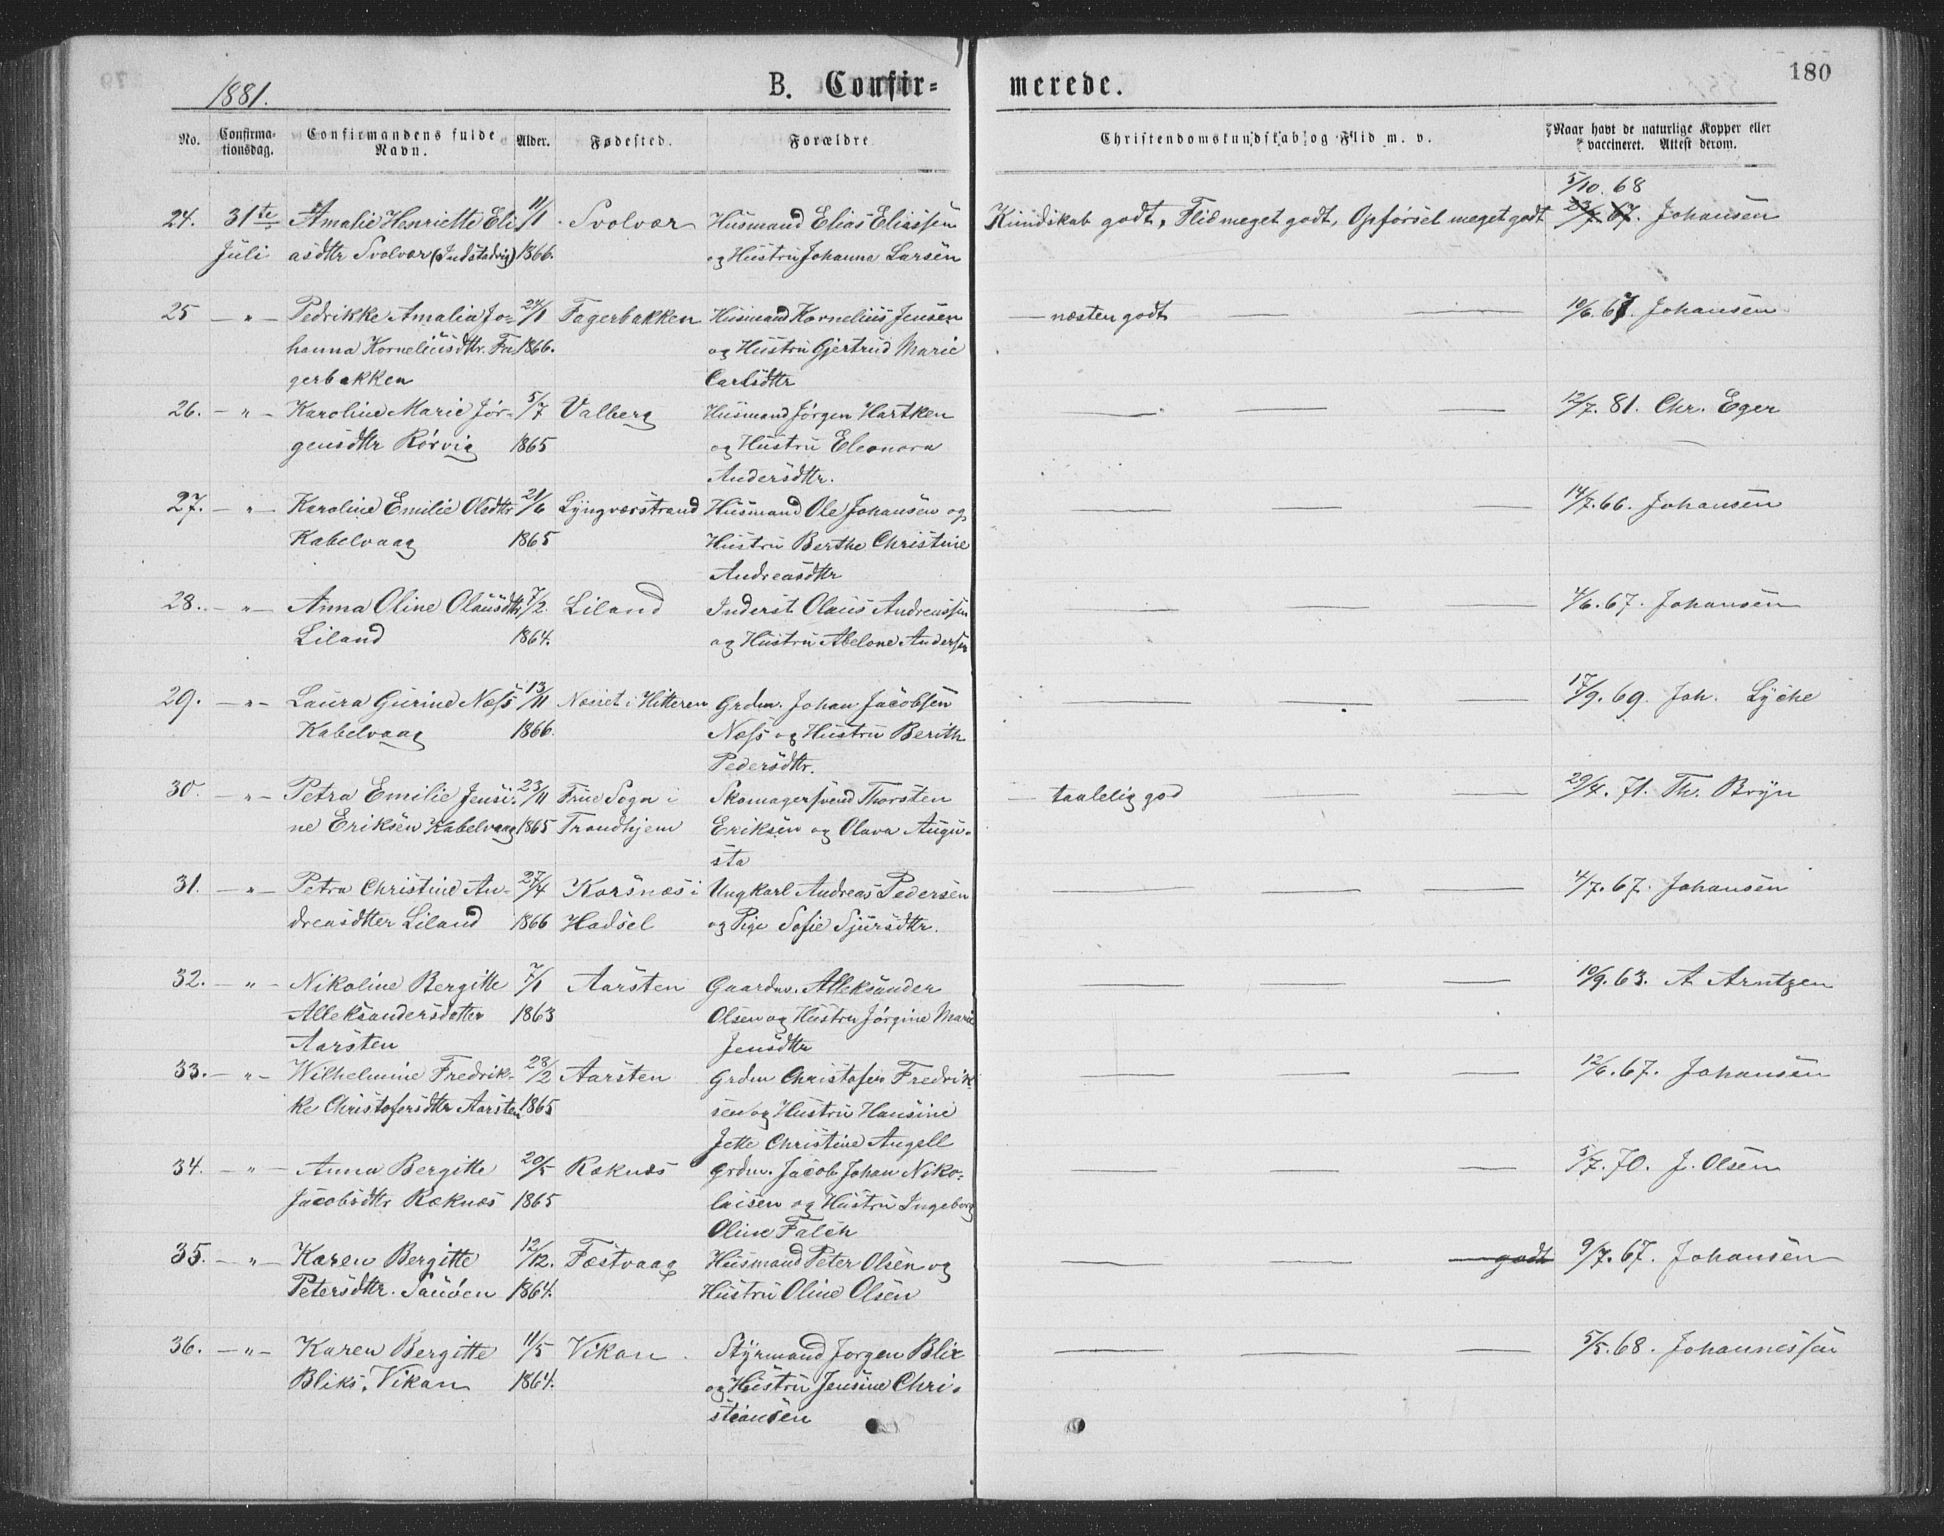 180
1881.
B. Confir-
merede.
No.
Confirma-
tionsdag.
Confirmandens fulde
Navn.
Alder.
Fødested.
Forældre
Christendomskundskab og Flid m. v.
Naar havt de naturlige Kopper eller
vaccineret. Attest derom.
5/10. 68
24. 31te Amalie Henriette Eli- 11/1 Svolvær Husmand Elias Eliassen Kundskab godt, Flid meget godt, Opførsel meget godt 23/7. 67. Johansen
Juli asdtr Svolvær (Indstadvig) 1866. og Hustru Johanna Larsen
25 — " — Pedrikke Amalia Jo- 24/1 Fagerbakken Husmand Kornelius Jensen — næsten godt — — 10/6. 67. Johansen
hanna Korneliusdtr. Fa- 1866. og Hustru Gjertrud Marie
gerbakken Carlsdtr
26. — " — Karoline Marie Jør- 5/7 Valberg Husmand Jørgen Hartken — — — 12/7. 81. Chr. Eger
gensdtr Rørvig 1865 og Hustru Eleonora
Andersdtr.
27. — " — Karoline Emilie Olsdtr 21/6 Lyngværstrand Husmand Ole Johansen og — — — 14/7. 66. Johansen
Kabelvaag 1865 Hustru Berthe Christine
Andreasdtr
28. — " — Anna Oline Olausdtr 7/2. Liland Inderst. Olaus Andreassen — — — 4/6. 67. Johansen
Liland 1864. og Hustru Abelone Andersen
29. — " — Laura Gurine Næss 13/11 Næsset i Hitteren Grdm. Johan Jacobsen — — — 17/9. 69. Joh. Lyche
Kabelvaag 1866. Næss og Hustru Berith
Pedersdtr.
30. — " — Petra Emilie Jensi- 23/11 Frue Sogn i Skomagersvend Thorsten — taalelig god — — 29/4. 71. Th. Bryn
ne Eriksen Kabelvaag 1865 Trondhjem Eriksen og Olava Augu-
sta
31. — " — Petra Christine An- 27/4 Korsnæs i Ungkarl Andreas Pedersen — — — 4/7. 67. Johansen
dreasdtter Liland 1866 Hadsel og Pige Sofie Sjursdtr.
32. — " — Nikoline Bergitte 7/1 Aarsten Gaardm. Alleksander — — — 10/9. 63. A Arntzen
Alleksandersdatter 1863 Olsen og Hustru Jørgine Marie
Aarsten Jensdtr
33. — " — Wilhelmine Fredrik- 28/2 Aarsten Grdm Christofer Fredrik- — — — 12/6. 67. Johansen
ke Christofersdtr Aarsten 1865 sen og Hustru Hansine
Jette Christine Angell
34. — " — Anna Bergitte 20/5 Røknes Grdm. Jacob Johan Niko- — — — 5/7. 70. J. Olsen
Jacobsdtr Røknæs 1865 laisen og Hustru Ingeborg
Oline Falch
35. — " — Karen Bergitte 12/12. Fæstvaag Husmand Peter Olsen og — — — godt 9/7. 67. Johansen
Petersdtr. Sauøen 1864. Hustru Oline Olsen
36. — " — Karen Bergitte 11/5 Vikan Styrmand Jørgen Blix — — — 5/5. 68. Johannessen
Bliks, Vikan 1864. og Hustru Jensine Chri-
stiansen